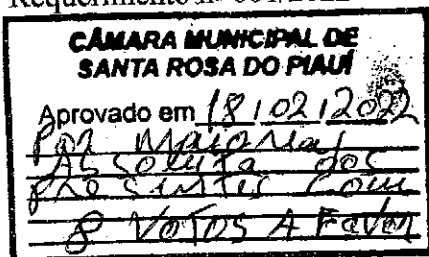 CÂMARA MUNICIPAL DE
SANTA ROSA DO PIAUÍ
Aprovado em 18/02/2022
Por Maioria
Absoluta dos
presintis com
8 Votos A Favor